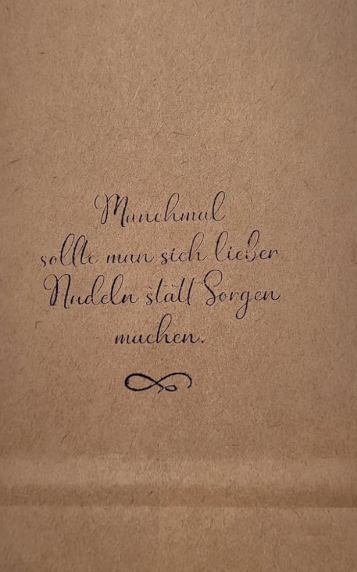 Manchmal
sollte man sich lieber
Nudeln statt Sorgen
machen.